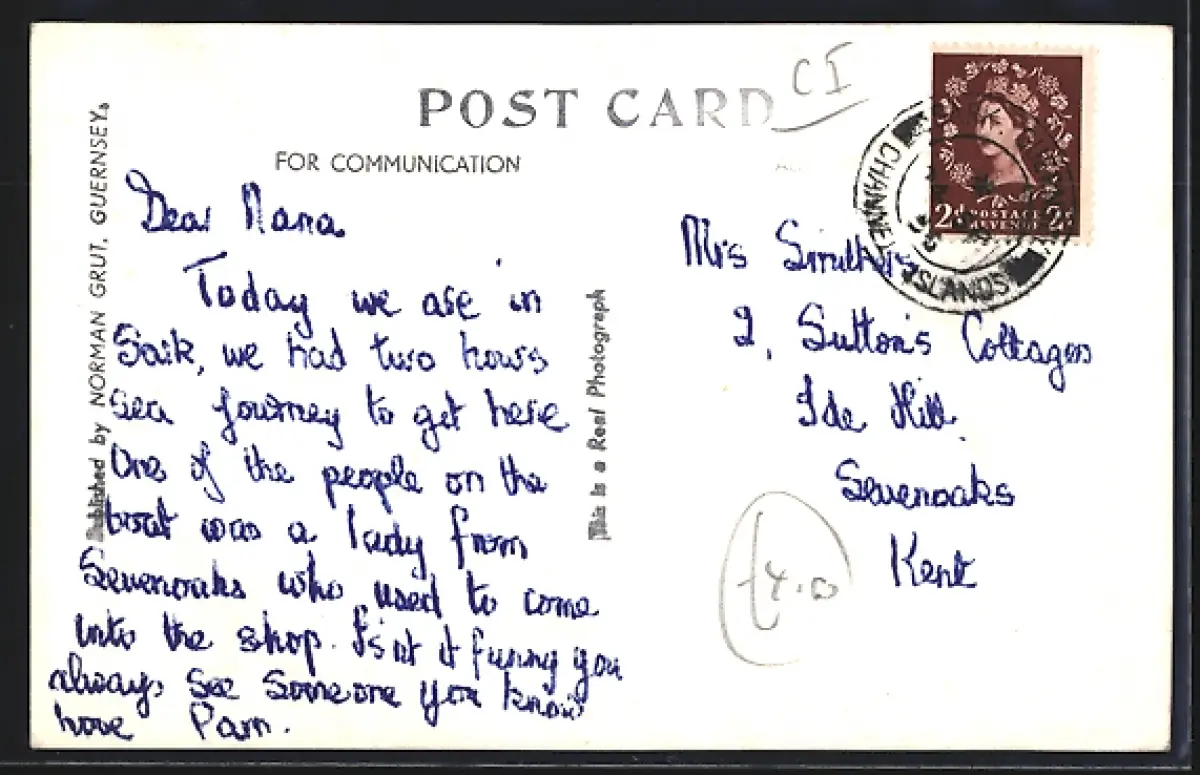 CI
POST CARD
FOR COMMUNICATION
Published by NORMAN GRUT, GUERNSEY.
This is a Real Photograph
CHANNEL ISLANDS
2d POSTAGE REVENUE 2d
Dear Nana
Today we are in
Sark, we had two hours
sea journey to get here
One of the people on the
boat was a lady from
Sevenoaks who used to come
into the shop. Isnt it funny you
always see someone you know
love Pam.
Mrs Smithers
2, Sutton's Cottages
Ide Hill.
Sevenoaks
Kent